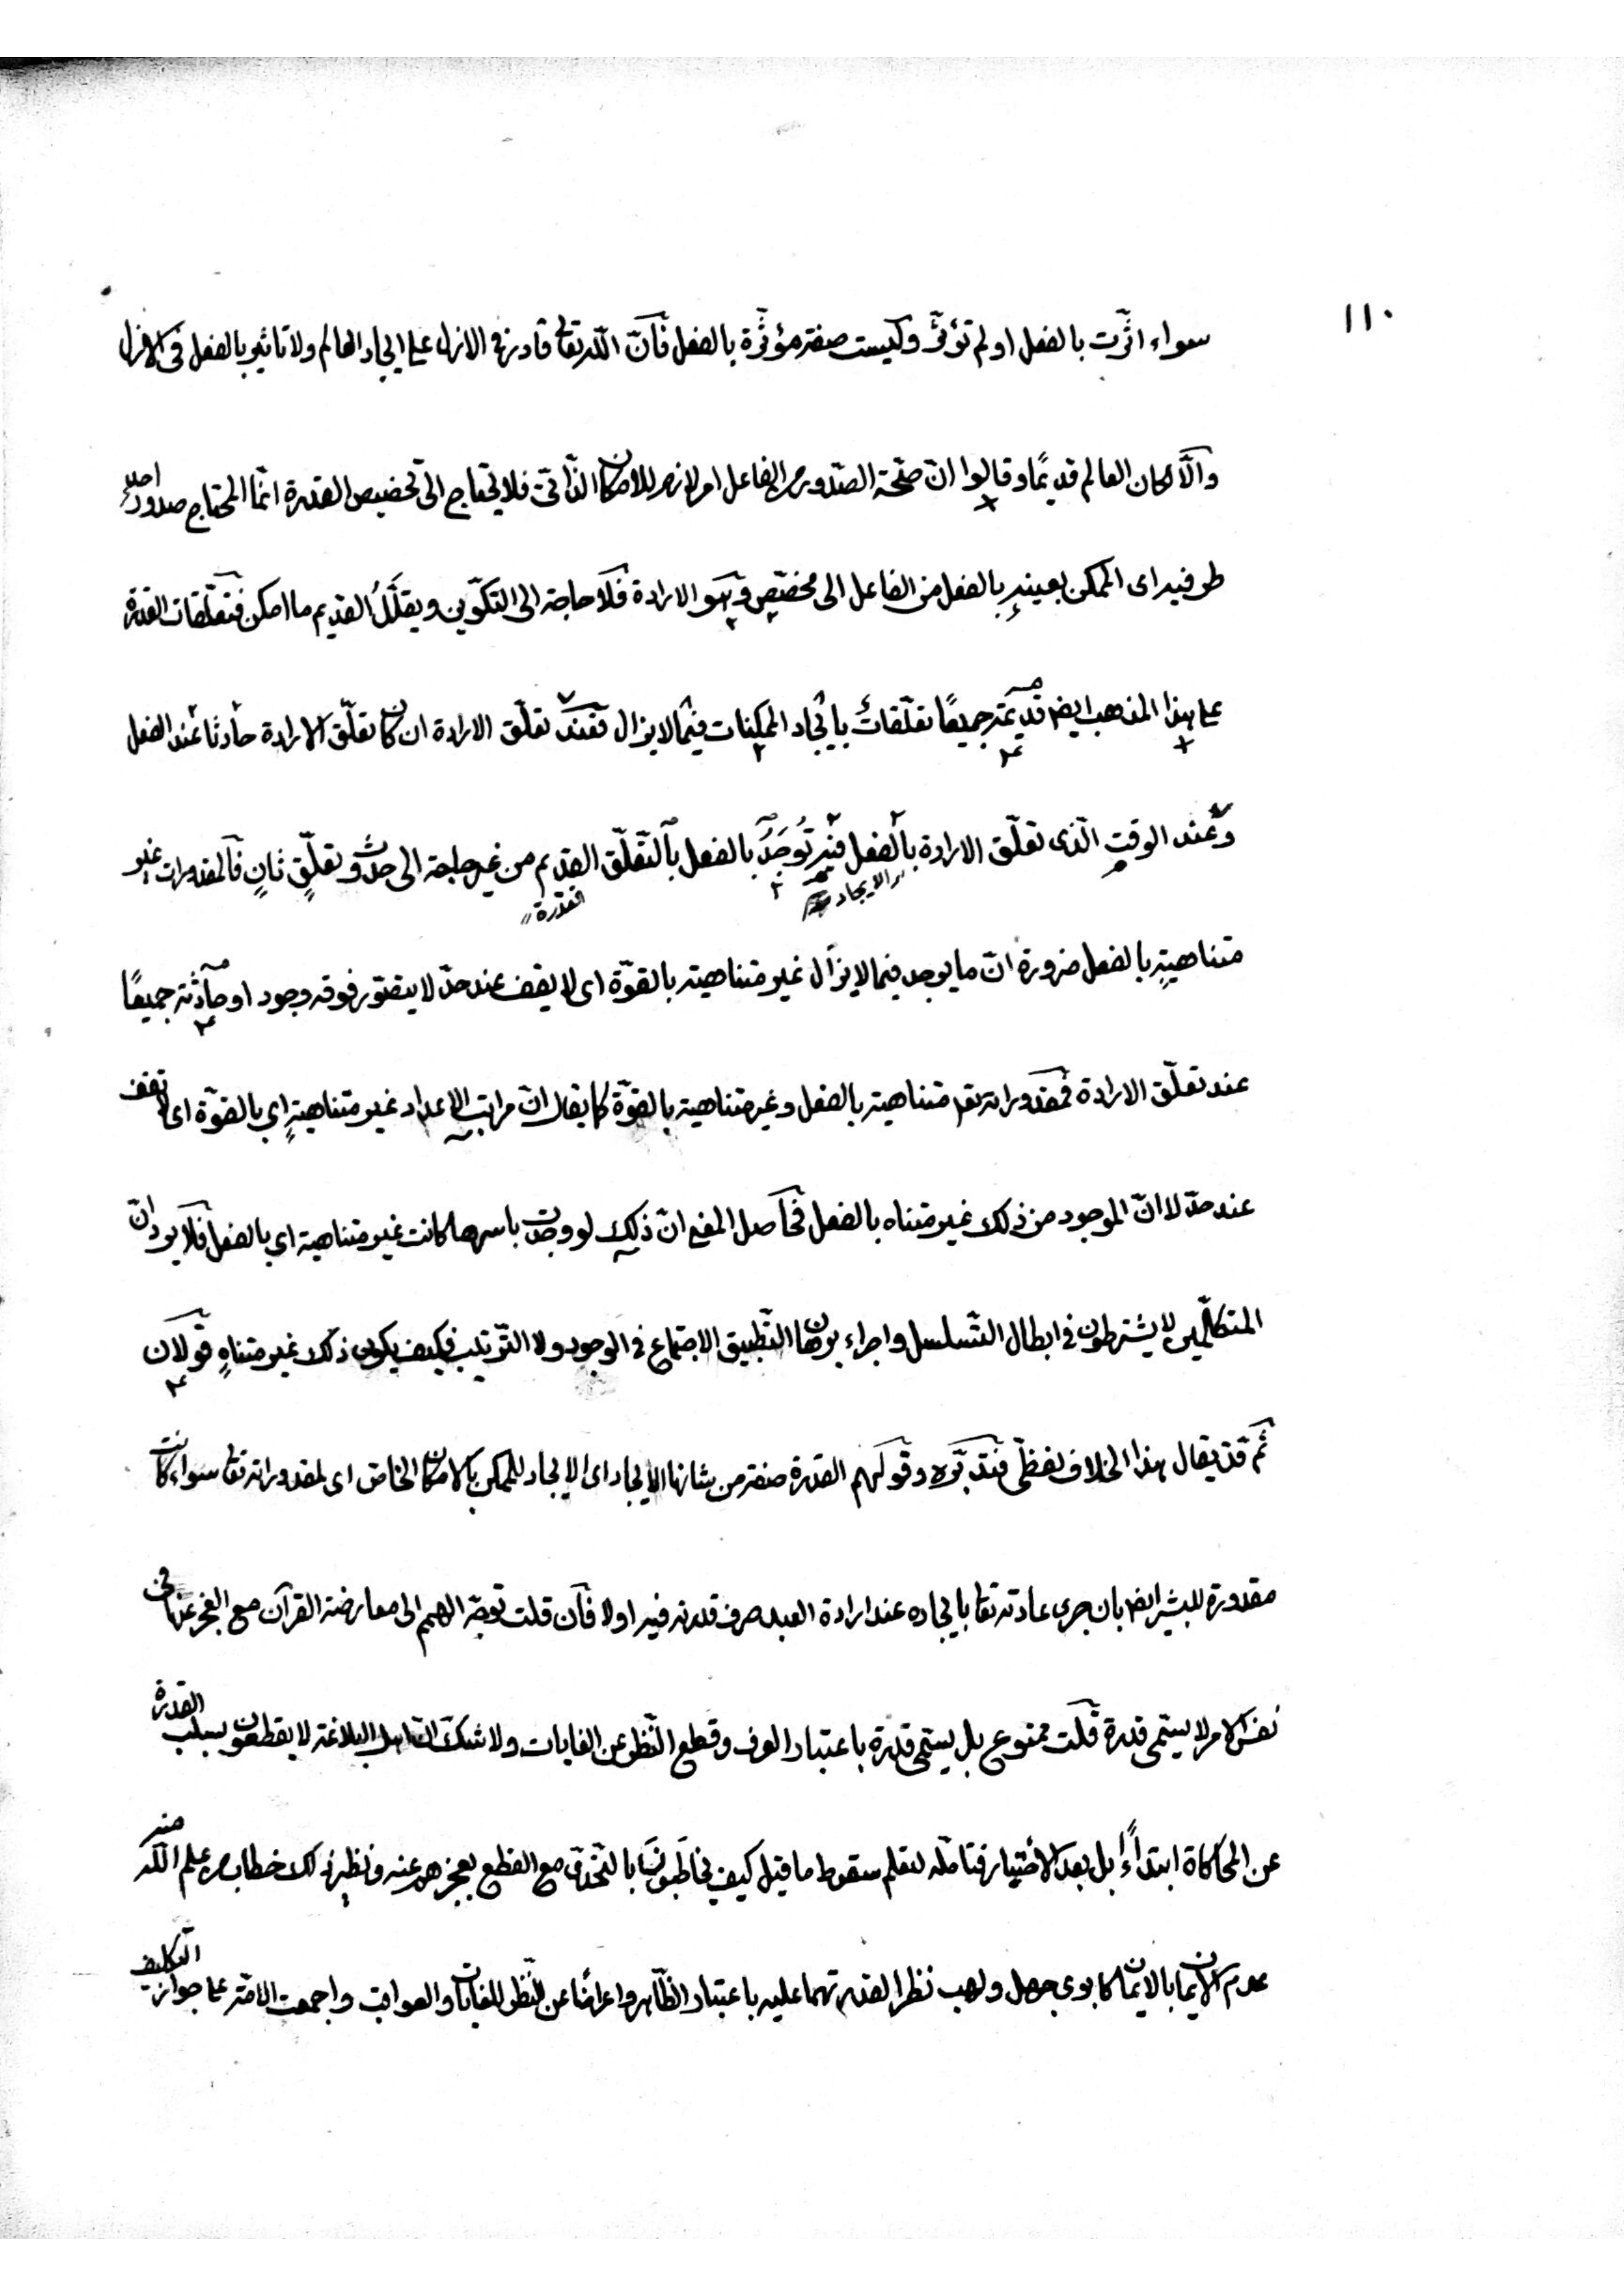 ١١٠
سواء اثّرت بالفعل او لم تؤثّر وليست صفة مؤثّرة بالفعل فان الله تعالى قادر فى الازل على ايجاد العالم ولا تاثير بالفعل فى الازل
والّا لكان العالم قديمًا وقالوا انّ صحّة الصّدور من الفاعل امر لازم للامكان الذّاتى فلا يحتاج الى تخصيص القدرة انّما المحتاج صدور احد
طرفيه اى الممكن بعينه بالفعل من الفاعل الى مخصّص وهو الارادة فلا حاجة الى التكوين ويقلّل القديم ما امكن فتعلّقات القدرة
على هذا المذهب ايضا قديمة جميعًا تعلّقات بايجاد الممكنات فيما لا يزال فعند تعلّق الارادة ان كان تعلّق الارادة حادثا عند الفعل
وعند الوقت الّذى تعلّق الارادة بالفعل فيه توجد بالفعل بالتعلّق القديم من غير حاجة الى حدوث تعلّق ثانٍ فالمقدورات غير
والايجاد
القدرة
متناهية بالفعل ضرورة انّ ما يوجد فيما لا يزال غير متناهية بالقوّة اى لا يقف عند حدّ لا يتصوّر فوقه وجود او حادثة جميعًا
عند تعلّق الارادة فمقدوراته تعا متناهية بالفعل وغير متناهية بالقوّة كما يقال انّ مراتب الاعداد غير متناهية اى بالقوّة اى لا تقف
عند حدّ لا انّ الموجود من ذلك غير متناه بالفعل فحاصل المعنى انّ ذلك لو وجدت باسرها كانت غير متناهية اى بالفعل فلا يرد انّ
المتكلّمين لا يشترطون فى ابطال التّسلسل واجراء برهان التّطبيق الاجتماع فى الوجود ولا التّرتيب فكيف يكون ذلك غير متناهٍ قولان
ثم قد يقال هذا الخلاف لفظى فتدبّره وقولهم القدرة صفة من شانها الايجاد اى الايجاد للممكن بالامكان الخاصّ اى لمقدوراته تعا سواء كانت
مقدورة للبشر ايضا بان جرى عادته تعا بايجاده عند ارادة العبد صرف قدرته فيه او لا فان قلت توجّه الهمم الى معارضة القرآن مع العجز عنها فى
نفس الامر لا يسمّى قدرة قلت ممنوع بل يسمّى قدرة باعتبار العرف وقطع النّظر عن الغايات ولا شكّ انّ اهل البلاغة لا يقطعون بسلب القدرة
عن المحاكاة ابتداءً بل بعد الاختيار فتامّله لتعلم سقوط ما قيل كيف يخاطبون بالتّحدّى مع القطع بعجزهم عنه ونظير ذلك خطاب من علم الله منه
عدم الايمان بالايمان كابوى جهل ولهب نظرا لقدرتهما عليه باعتبار الظّاهر واعراضًا عن النّظر للغايات والعواقب واجمعت الامّة على جواز التكليف